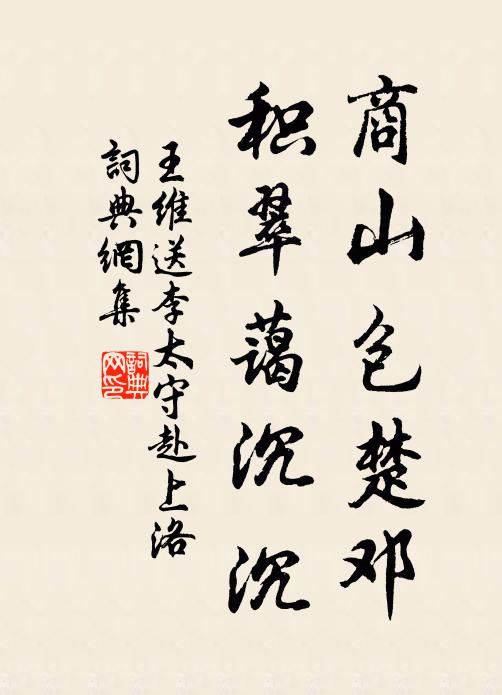 商山包楚邓
积翠藹沉沉
王維送李太守赴上洛
詞典網集
詞典网印